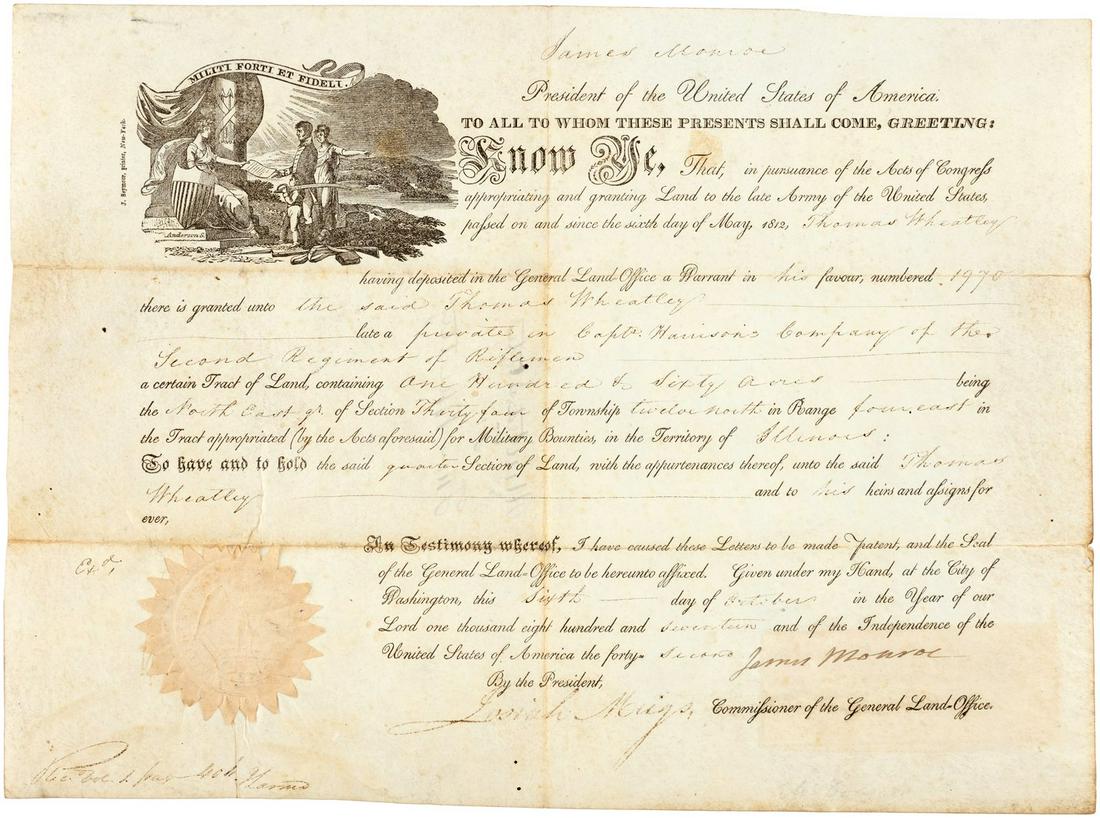 James Monroe
MILITI FORTI ET FIDELI.
President of the United States of America.
TO ALL TO WHOM THESE PRESENTS SHALL COME, GREETING:
Know Ye, That, in pursuance of the Acts of Congress
appropriating and granting Land to the late Army of the United States,
passed on and since the sixth day of May, 1812, Thomas Wheatley
J. Seymour, printer, New-York.
Anderson S.
having deposited in the General Land-Office a Warrant in his favour, numbered 1970
there is granted unto the said Thomas Wheatley
late a private in Capt: Harrison's Company of the
Second Regiment of Riflemen
a certain Tract of Land, containing One Hundred & Sixty acres being
the North East qr. of Section Thirty four of Township twelve north in Range four east in
the Tract appropriated (by the Acts aforesaid) for Military Bounties, in the Territory of Illinois:
To have and to hold the said quarter Section of Land, with the appurtenances thereof, unto the said Thomas
Wheatley and to his heirs and assigns for
ever,
In Testimony whereof, I have caused these Letters to be made Patent, and the Seal
of the General Land-Office to be hereunto affixed. Given under my Hand, at the City of
Washington, this Sixth day of October in the Year of our
Lord one thousand eight hundred and seventeen and of the Independence of the
United States of America the forty-second James Monroe
By the President,
Josiah Meigs, Commissioner of the General Land-Office.
Exd,
Rec. Vol. 1 page